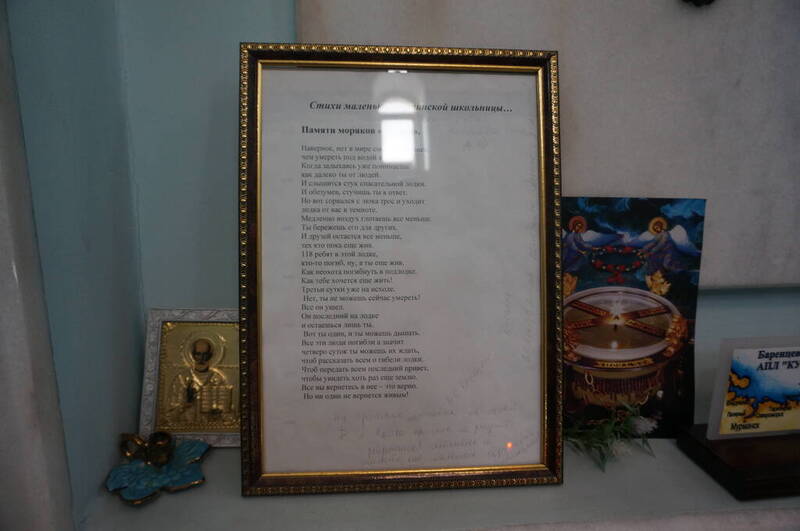 Стихи школьницы…
Памяти моряков
Наверное, нет в мире
чем умереть под водой
Когда задыхаясь уже
как далеко ты от людей.
И слышится стук спасательной лодки.
И обезумев, стучишь ты в ответ.
Но вот сорвался с люка трос и уходит
лодка от вас в темноте.
Медленно воздух глотаешь все меньше.
Ты бережешь его для других.
И друзей остается все меньше,
тех кто пока еще жив.
118 ребят в этой лодке,
кто-то погиб, ну, а ты еще жив.
Как неохота погибнуть в подлодке.
Как тебе хочется еще жить!
Третьи сутки уже на исходе.
Нет, ты не можешь сейчас умереть!
Все он ушел.
Он последний на лодке
и остаешься лишь ты.
Вот ты один, и ты можешь дышать.
Все эти люди погибли а значит
четверо суток ты можешь их ждать,
чтоб рассказать всем о гибели лодки.
Чтоб передать всем последний привет,
чтобы увидеть хоть раз еще землю.
Все вы вернетесь в нее – это верно.
Но ни один не вернется живым!
Баренцев
АПЛ "КУ
Мурманск